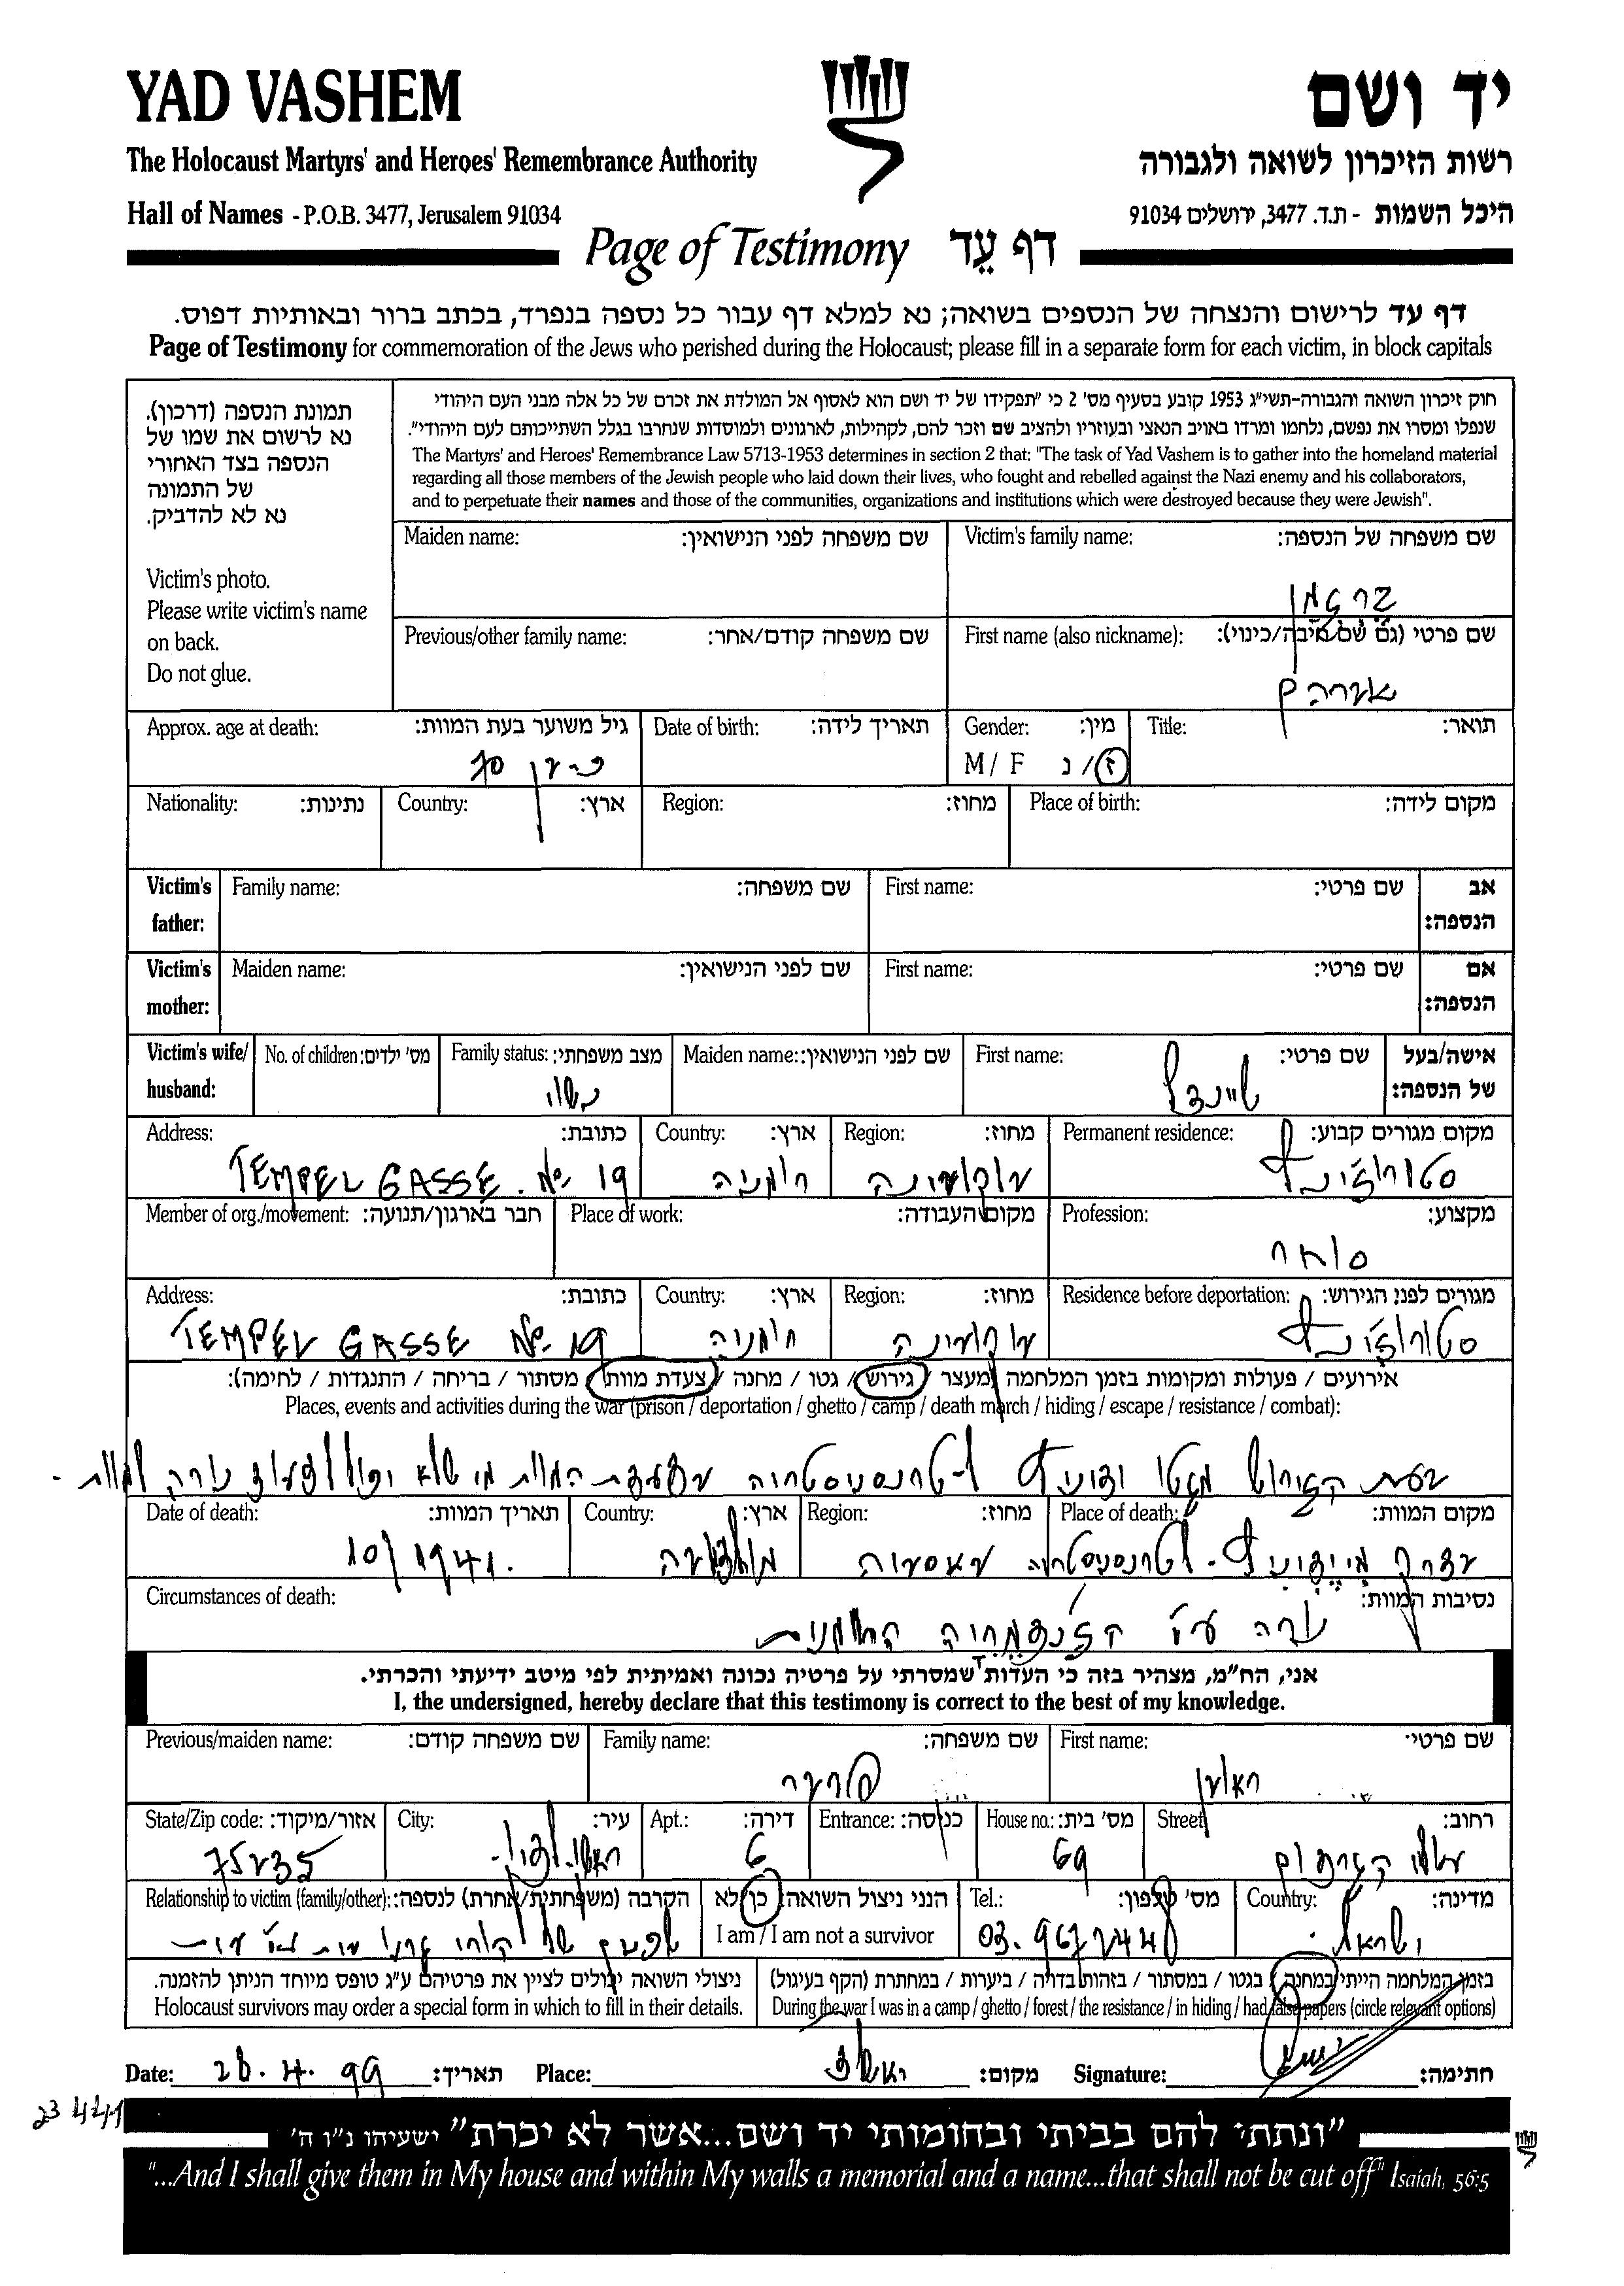 YAD VASHEM
יד ושם
The Holocaust Martyrs' and Heroes' Remembrance Authority
רשות הזיכרון לשואה ולגבורה
Hall of Names - P.O.B. 3477, Jerusalem 91034
היכל השמות - ת.ד. 3477, ירושלים 91034
Page of Testimony דף עֵד
דף עד לרישום והנצחה של הנספים בשואה; נא למלא דף עבור כל נספה בנפרד, בכתב ברור ובאותיות דפוס.
Page of Testimony for commemoration of the Jews who perished during the Holocaust; please fill in a separate form for each victim, in block capitals
תמונת הנספה (דרכון).
נא לרשום את שמו של
הנספה בצד האחורי
של התמונה
נא לא להדביק.
Victim's photo.
Please write victim's name
on back.
Do not glue.
חוק זיכרון השואה והגבורה-תשי"ג 1953 קובע בסעיף מס' 2 כי "תפקידו של יד ושם הוא לאסוף אל המולדת את זכרם של כל אלה מבני העם היהודי
שנפלו ומסרו את נפשם, נלחמו ומרדו באויב הנאצי ובעוזריו ולהציב שם וזכר להם, לקהילות, לארגונים ולמוסדות שנחרבו בגלל השתייכותם לעם היהודי".
The Martyrs' and Heroes' Remembrance Law 5713-1953 determines in section 2 that: "The task of Yad Vashem is to gather into the homeland material
regarding all those members of the Jewish people who laid down their lives, who fought and rebelled against the Nazi enemy and his collaborators,
and to perpetuate their names and those of the communities, organizations and institutions which were destroyed because they were Jewish".
Maiden name: שם משפחה לפני הנישואין:
Victim's family name: שם משפחה של הנספה:
Previous/other family name: שם משפחה קודם/אחר:
First name (also nickname): שם פרטי (גם שם חיבה/כינוי):
אברהם
Approx. age at death: גיל משוער בעת המוות:
Date of birth: תאריך לידה:
Gender: מין:
Title: תואר:
70
M / F ז / נ
Nationality: נתינות:
Country: ארץ:
Region: מחוז:
Place of birth: מקום לידה:
Victim's father: Family name: שם משפחה: First name: שם פרטי: אב הנספה:
Victim's mother: Maiden name: שם לפני הנישואין: First name: שם פרטי: אם הנספה:
Victim's wife/ husband: No. of children: מס' ילדים: Family status: מצב משפחתי: Maiden name: שם לפני הנישואין: First name: שם פרטי: אישה/בעל של הנספה:
נשוי
שיינדל
Address: כתובת: Country: ארץ: Region: מחוז: Permanent residence: מקום מגורים קבוע:
TEMPEL GASSE. No. 19 רומניה בוקובינה סטורוז'ינץ
Member of org./movement: חבר בארגון/תנועה: Place of work: מקום העבודה: Profession: מקצוע:
סוחר
Address: כתובת: Country: ארץ: Region: מחוז: Residence before deportation: מגורים לפני הגירוש:
TEMPEL GASSE No. 19 רומניה בוקובינה סטורוז'ינץ
אירועים / פעולות ומקומות בזמן המלחמה (מעצר / גירוש / גטו / מחנה / צעדת מוות / מסתור / בריחה / התנגדות / לחימה):
Places, events and activities during the war (prison / deportation / ghetto / camp / death march / hiding / escape / resistance / combat):
בעת הגירוש מגטו ידיניץ לטרנסניסטריה בצעדת המוות מי שלא יכול לצעוד נורה למוות -
Date of death: תאריך המוות: Country: ארץ: Region: מחוז: Place of death: מקום המוות:
10/1941. בדרך מיידיניץ לטרנסניסטריה
Circumstances of death: נסיבות המוות:
נורה ע"י הז'נדרמריה הרומנית
אני, הח"מ, מצהיר בזה כי העדות שמסרתי על פרטיה נכונה ואמיתית לפי מיטב ידיעתי והכרתי.
I, the undersigned, hereby declare that this testimony is correct to the best of my knowledge.
Previous/maiden name: שם משפחה קודם: Family name: שם משפחה: First name: שם פרטי
ראובן
State/Zip code: אזור/מיקוד: City: עיר: Apt.: דירה: Entrance: כניסה: House no.: מס' בית: Street רחוב:
75235 ראשל"צ 6 69
Relationship to victim (family/other): הקרבה (משפחתית/אחרת) לנספה: הנני ניצול השואה: כן / לא Tel.: מס' טלפון: Country: מדינה:
I am / I am not a survivor
ישראל
ניצולי השואה יכולים לציין את פרטיהם ע"ג טופס מיוחד הניתן להזמנה.
Holocaust survivors may order a special form in which to fill in their details.
בזמן המלחמה הייתי במחנה / בגטו / במסתור / בזהות בדויה / ביערות / במחתרת (הקף בעיגול)
During the war I was in a camp / ghetto / forest / the resistance / in hiding / had false papers (circle relevant options)
Date: 28.4.99 תאריך: Place: ראשל"צ מקום: Signature: חתימה:
23441
"ונתתי להם בביתי ובחומותי יד ושם...אשר לא יכרת" ישעיהו נ"ו ה'
"...And I shall give them in My house and within My walls a memorial and a name...that shall not be cut off" Isaiah, 56:5